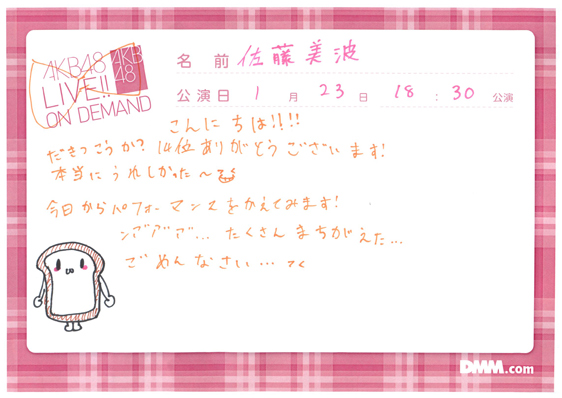 AKB48
LIVE!!
ON DEMAND
AKB
48
名 前 佐藤美波
公演日 1 月 23 日 18 : 30 公演
こんにちは!!!
だきつこうか? 14位ありがとうございます!
本当にうれしかった〜
今日からパフォーマンスをかえてみます!
たくさんまちがえた...
ごめんなさい...
DMM.com